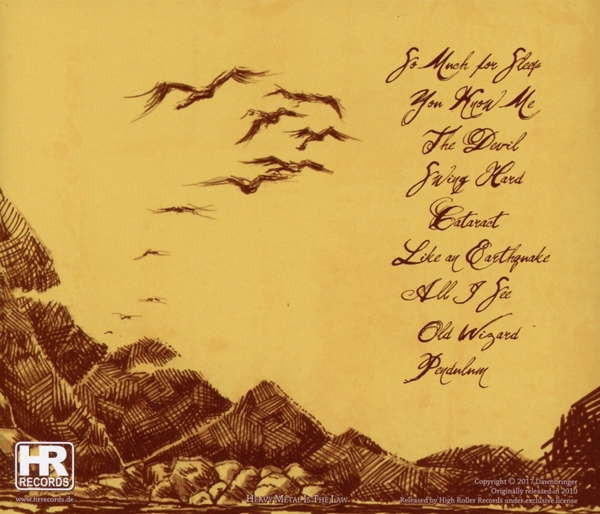 So Much for Sleep
You Know Me
The Devil
Swing Hard
Cataract
Like an Earthquake
All I See
Old Wizard
Pendulum
HR
RECORDS
www.hrrecords.de
Heavy Metal Is The Law
Copyright © 2017 Dawnbringer
Originally released in 2010
Released by High Roller Records under exclusive license